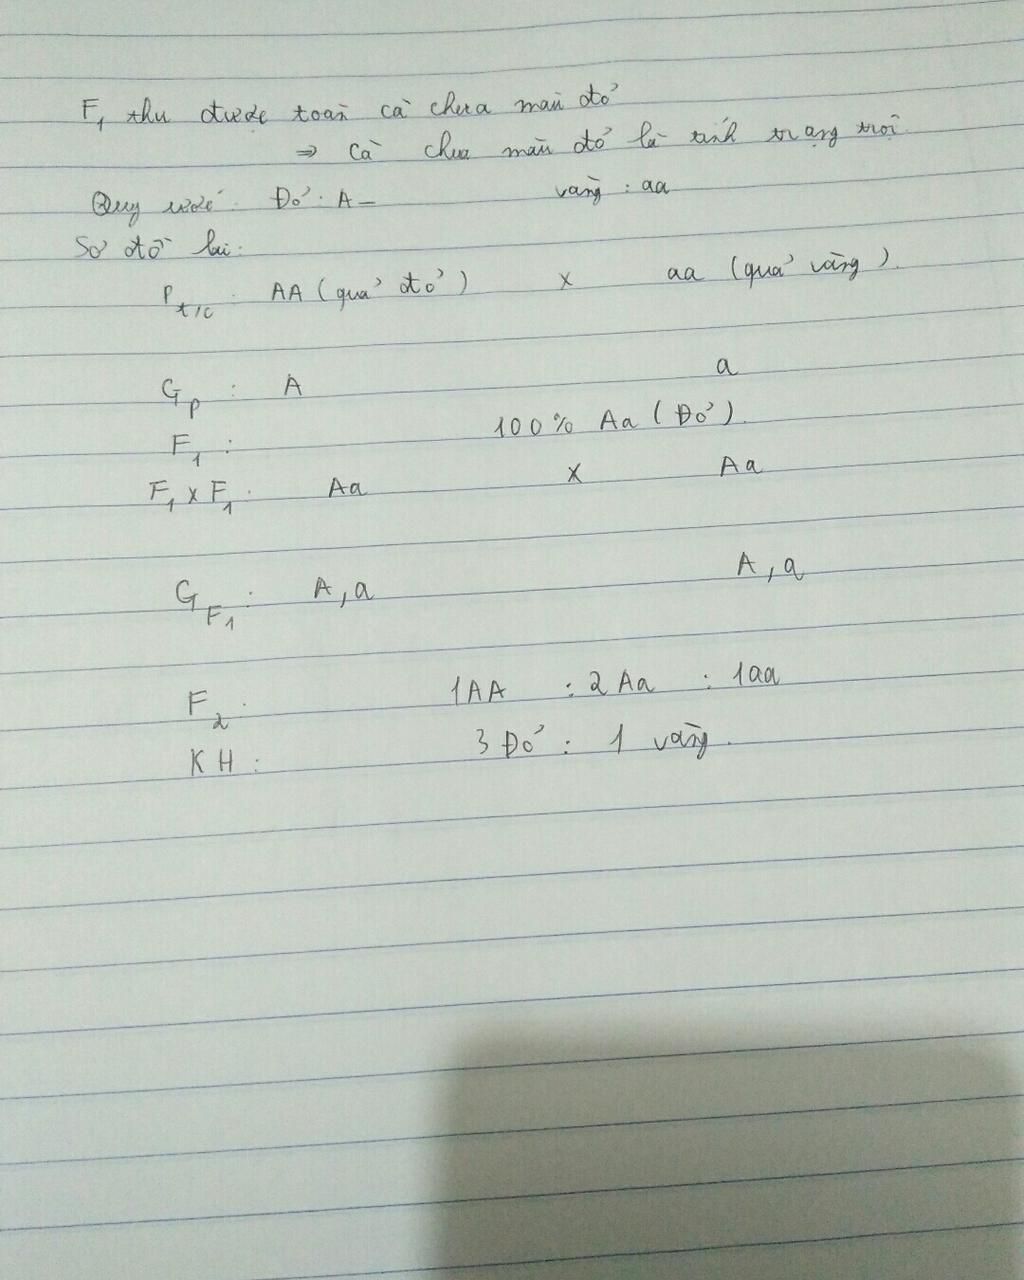 F₁ thu được toàn cà chua màu đỏ
⇒ cà chua màu đỏ là tính trạng trội.
Quy ước: Đỏ: A_ vàng: aa
Sơ đồ lai:
P t/c: AA (quả đỏ) x aa (quả vàng).
G P: A a
F₁: 100% Aa (Đỏ).
F₁ x F₁: Aa x Aa
G F₁: A, a A, a
F₂: 1AA : 2Aa : 1aa
KH: 3 Đỏ: 1 vàng.